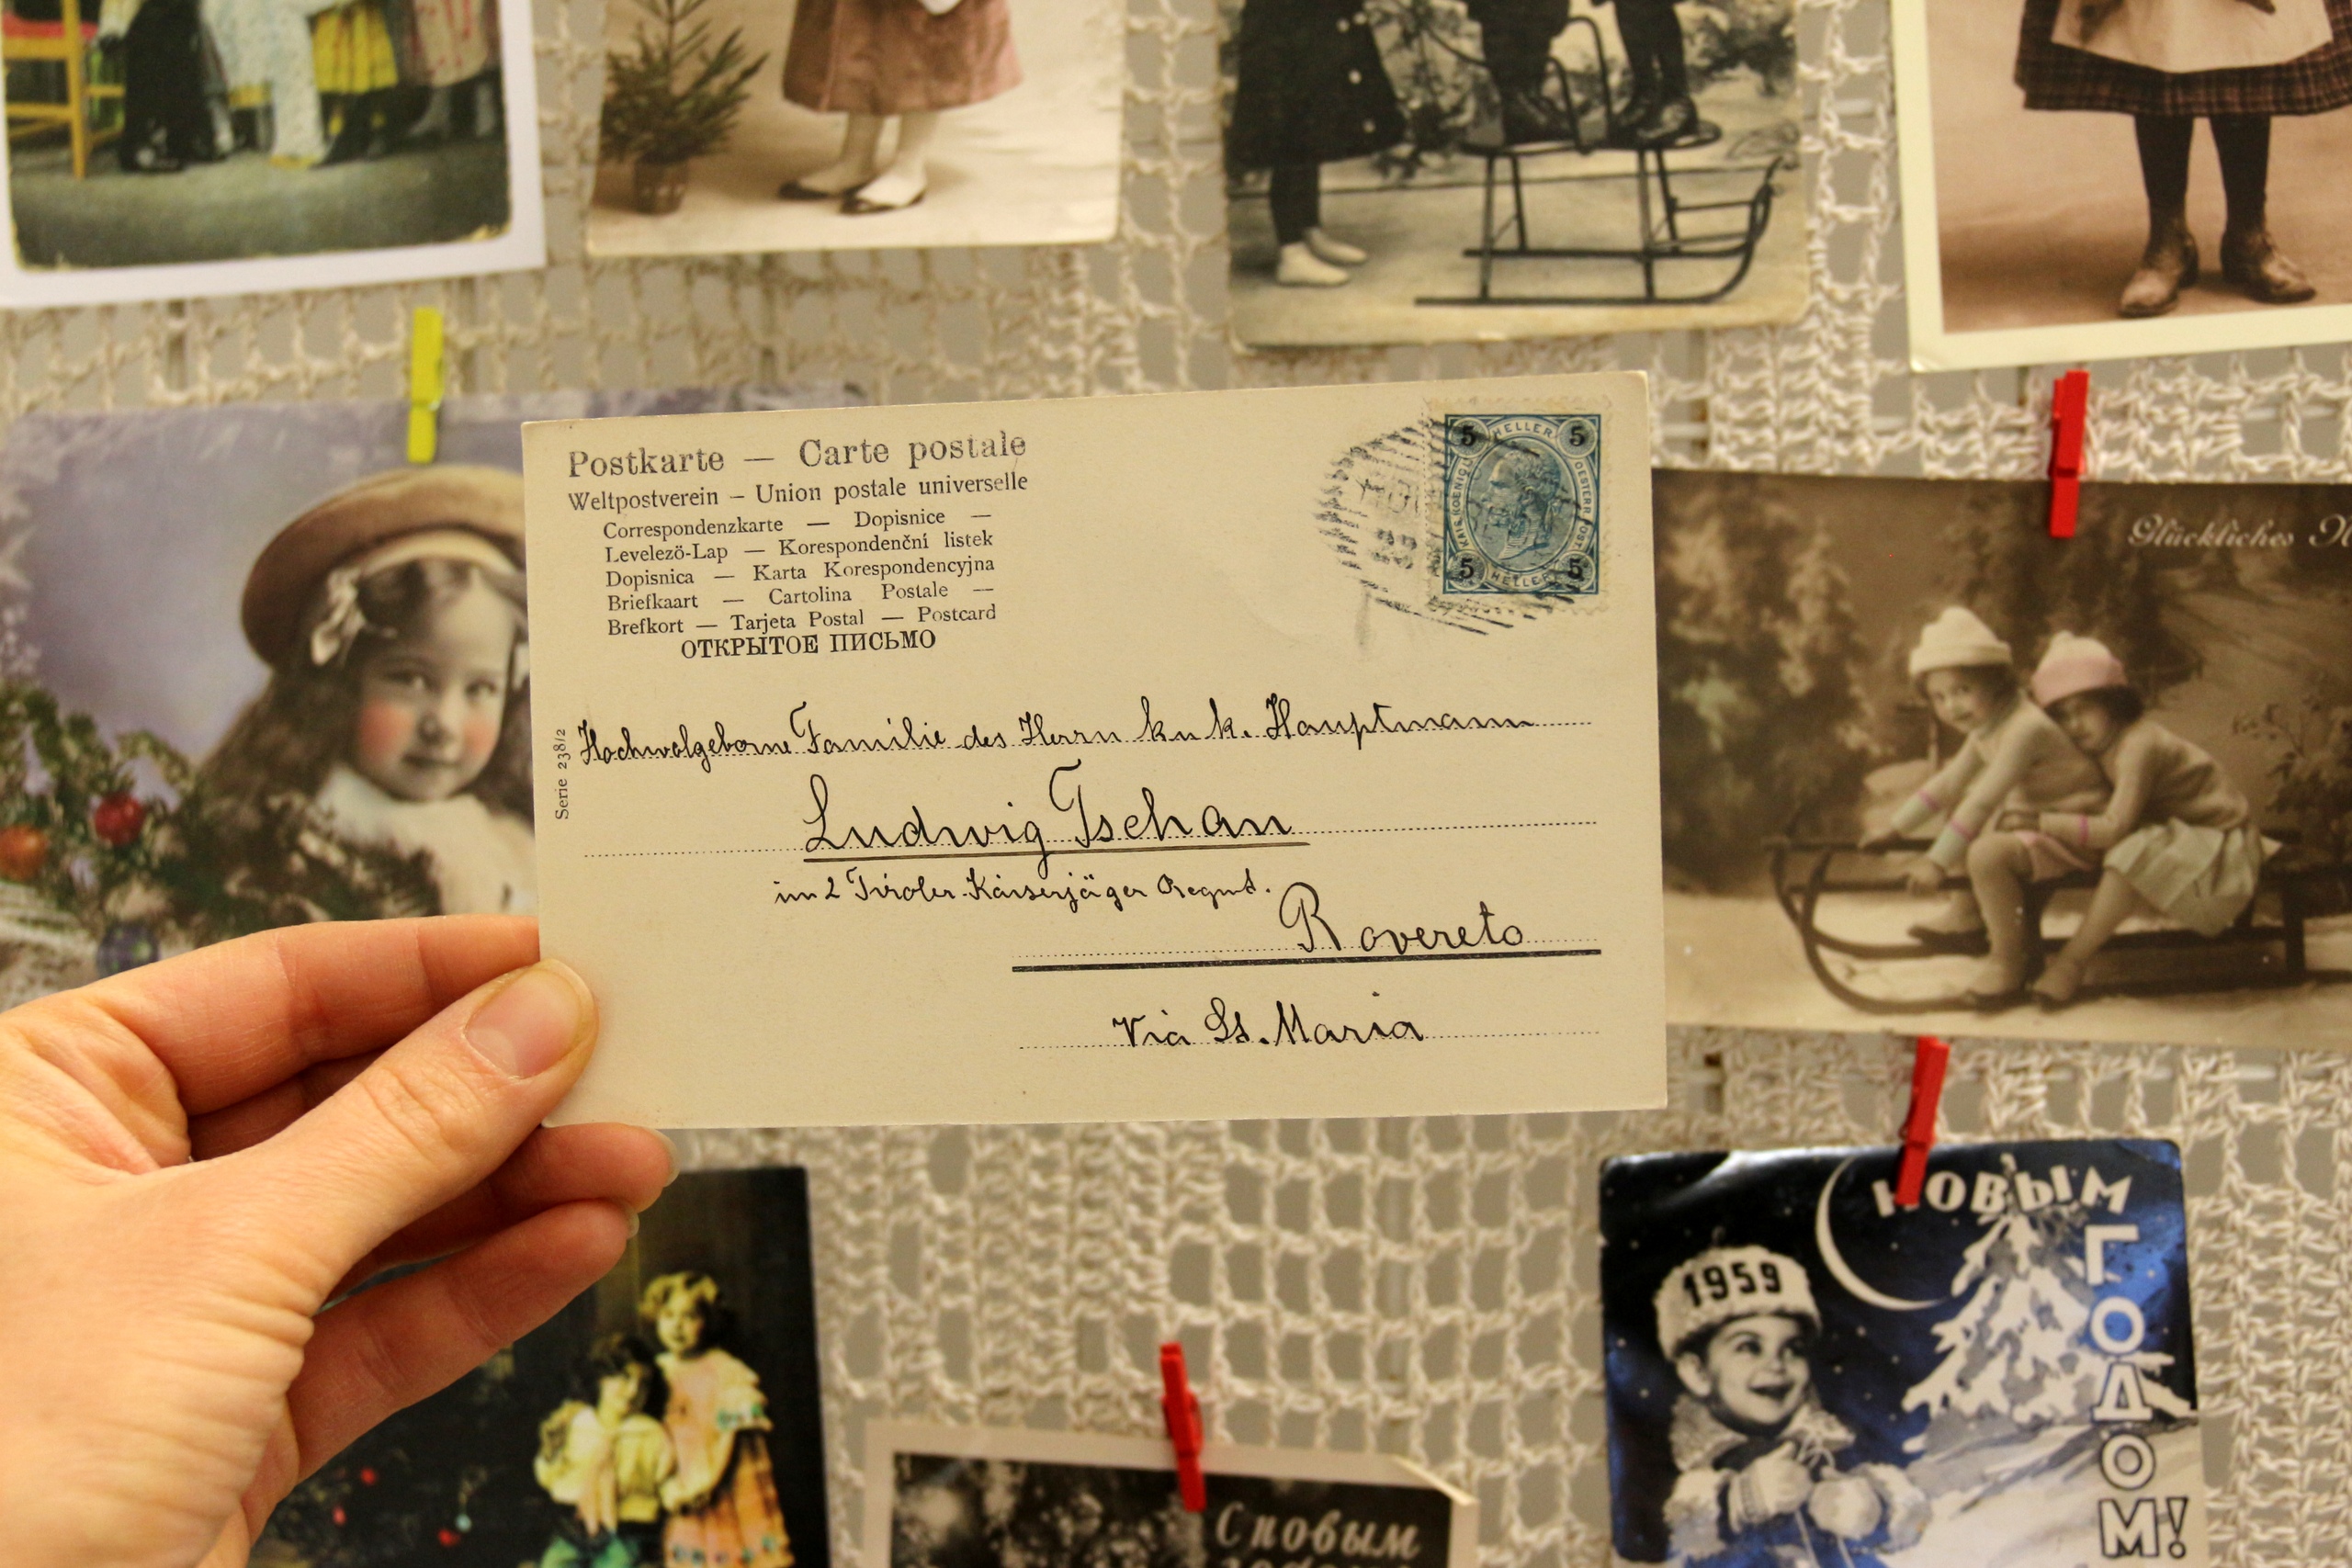 Postkarte — Carte postale
Weltpostverein – Union postale universelle
Correspondenzkarte — Dopisnice —
Levelező-Lap — Korespondenční listek
Dopisnica — Karta Korespondencyjna
Briefkaart — Cartolina Postale —
Brefkort — Tarjeta Postal — Postcard
ОТКРЫТОЕ ПИСЬМО
5 HELLER 5
KAIS KOENIGL OESTERR POST
5 HELLER 5
Serie 238/2
Hochwolgeborne Familie des Herrn k u k. Hauptmann
Ludwig Tschan
im 2 Tiroler Kaiserjäger Regmt.
Rovereto
Via St. Maria
Glückliches
НОВЫМ
ГОДОМ!
1959
С новым